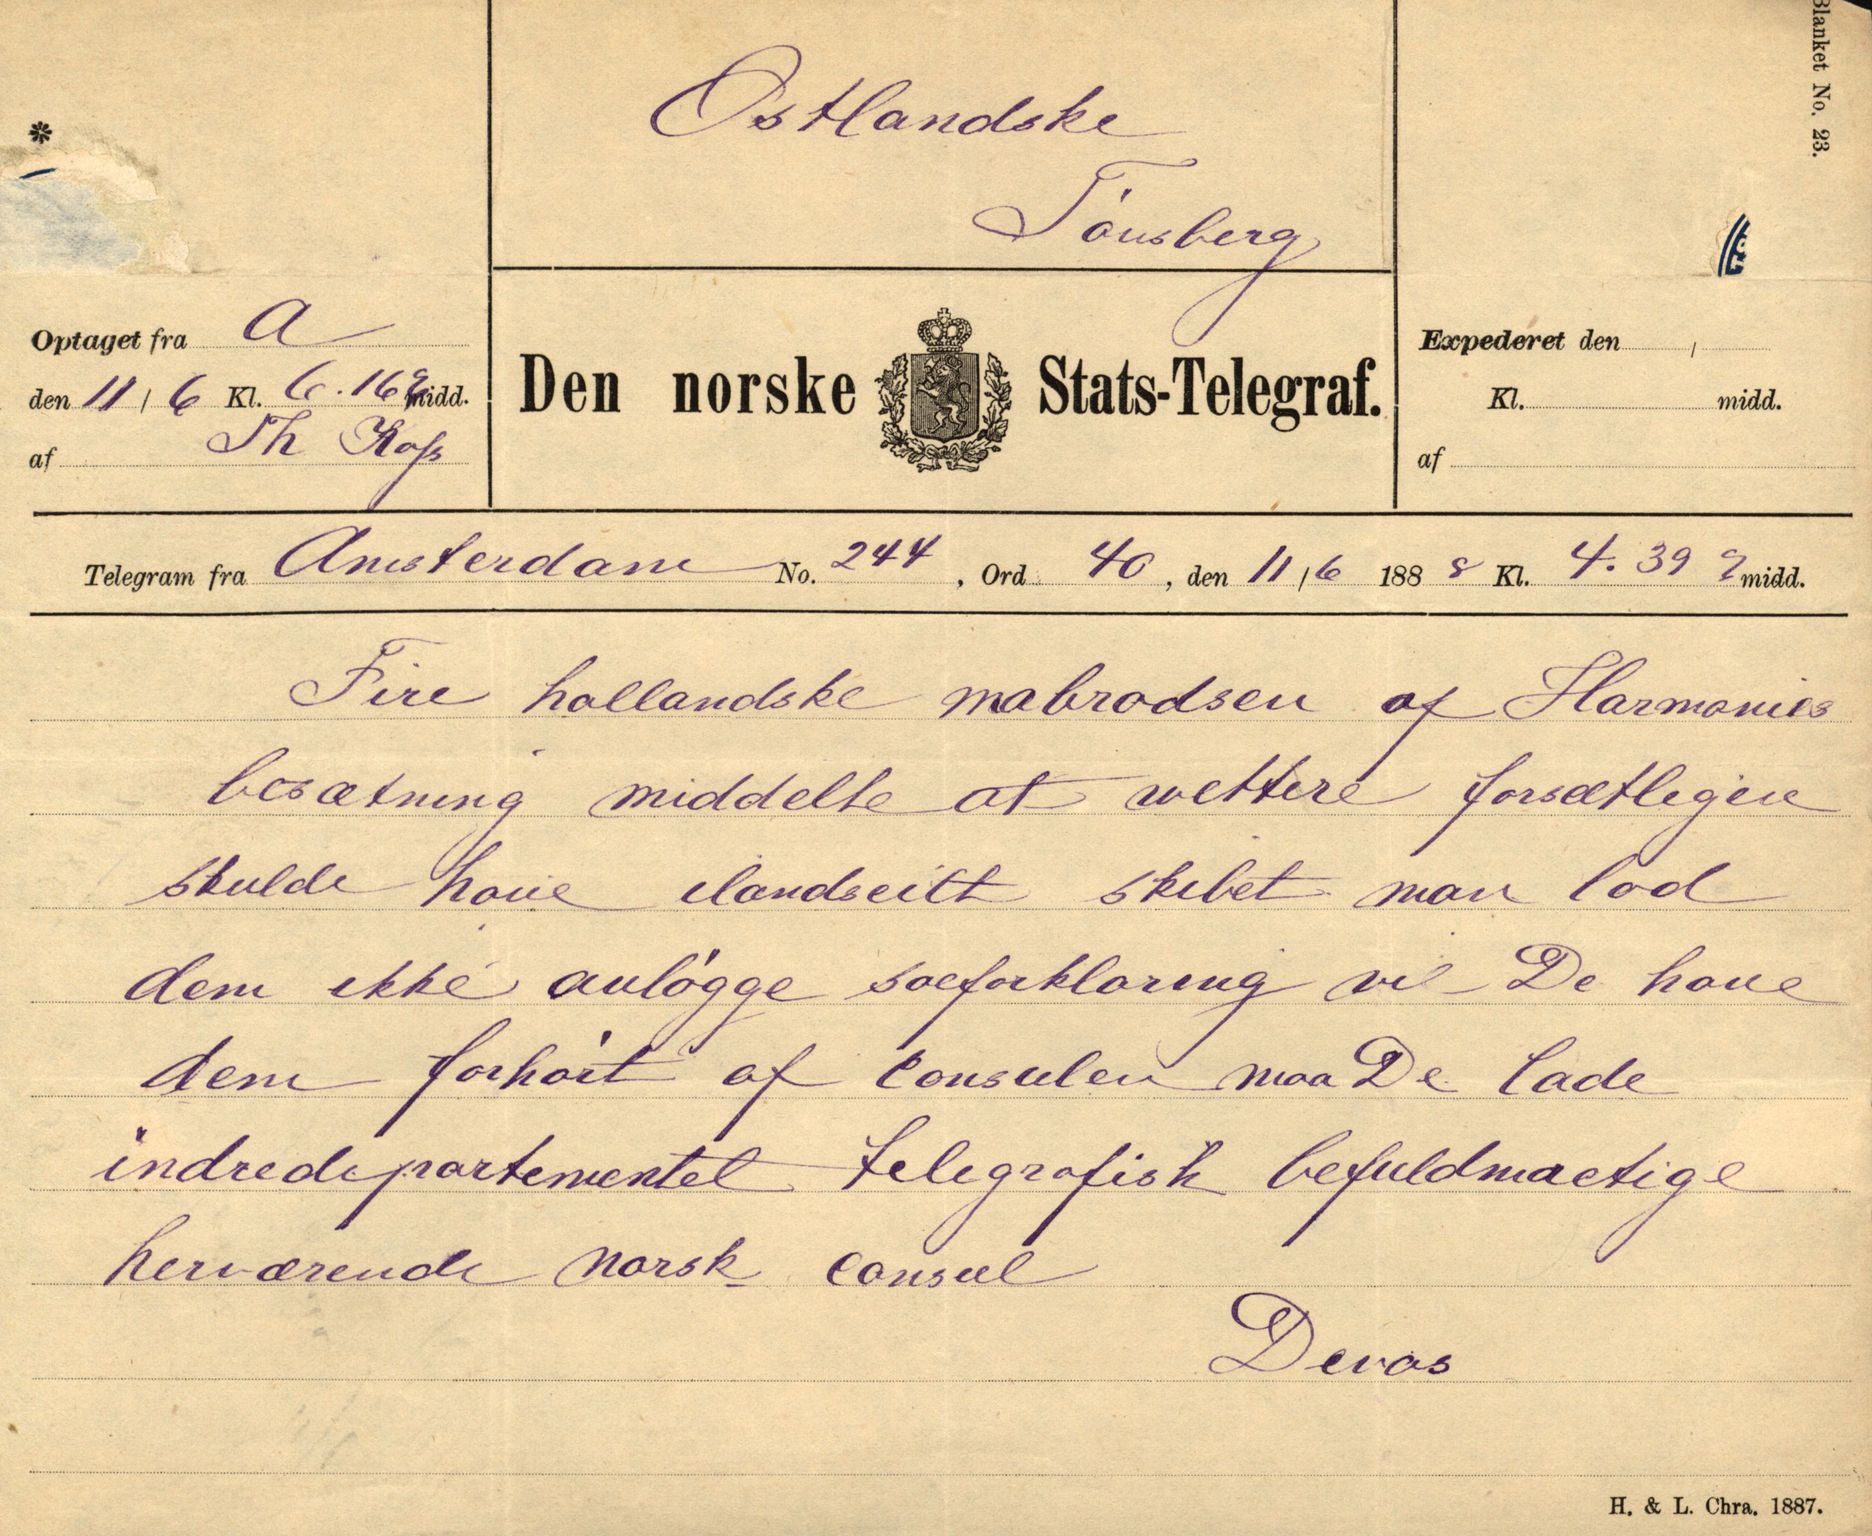 Blanket No. 23.
Ostlandske
Tönsberg
Optaget fra A
den 11/6 Kl. 6.16 e midd.
af Th Koss
Den norske Stats-Telegraf.
Expederet den /
Kl. midd.
af
Telegram fra Amsterdam No. 244, Ord 40, den 11/6 1888 Kl. 4.39 e midd.
Fire hollandske mabrodsen af Harmonies
besætning middelte at wettere forsætligen
skulde have ilandseilt skibet man lod
dem ikke anlögge soeforklaring vil De have
dem forhört af consulen maa De lade
indredepartementet telegrafisk befuldmactige
herværende norsk consul
Devos
H. & L. Chra. 1887.